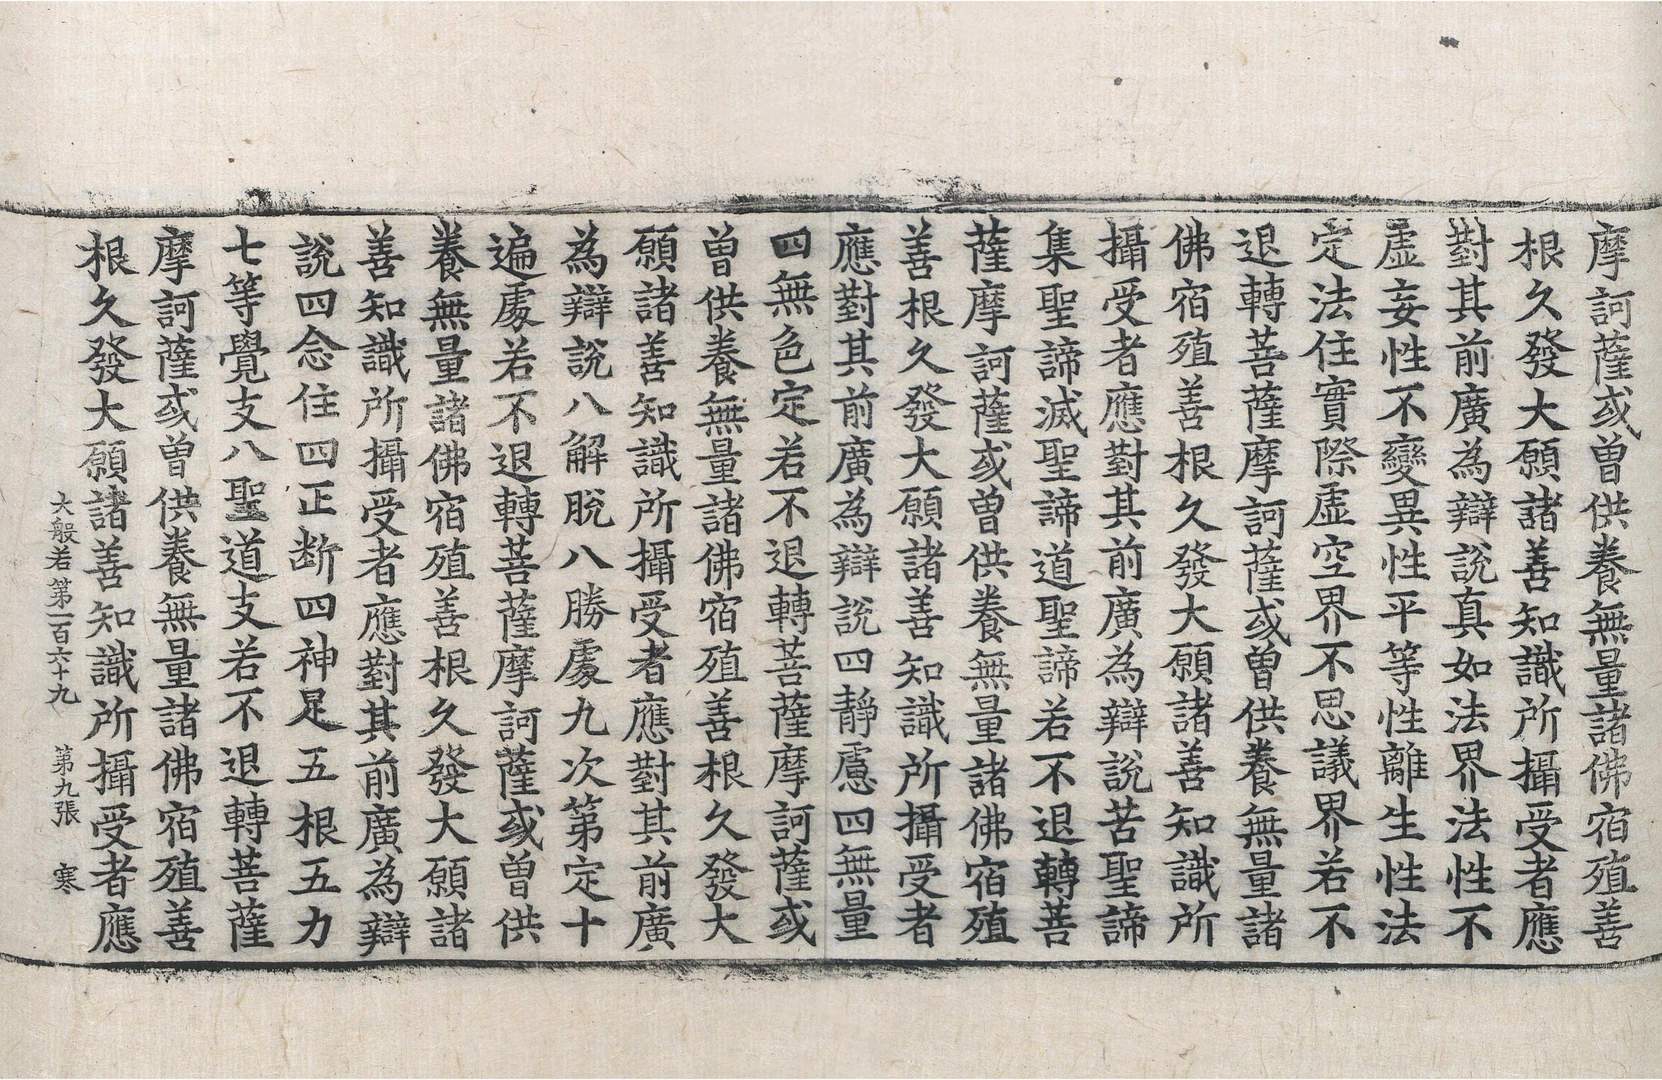 摩訶薩或曾供養無量諸佛宿殖善
根久發大願諸善知識所攝受者應
對其前廣為辯說真如法界法性不
虛妄性不變異性平等性離生性法
定法住實際虛空界不思議界若不
退轉菩薩摩訶薩或曾供養無量諸
佛宿殖善根久發大願諸善知識所
攝受者應對其前廣為辯說苦聖諦
集聖諦滅聖諦道聖諦若不退轉菩
薩摩訶薩或曾供養無量諸佛宿殖
善根久發大願諸善知識所攝受者
應對其前廣為辯說四靜慮四無量
四無色定若不退轉菩薩摩訶薩或
曾供養無量諸佛宿殖善根久發大
願諸善知識所攝受者應對其前廣
為辯說八解脫八勝處九次第定十
遍處若不退轉菩薩摩訶薩或曾供
養無量諸佛宿殖善根久發大願諸
善知識所攝受者應對其前廣為辯
說四念住四正斷四神足五根五力
七等覺支八聖道支若不退轉菩薩
摩訶薩或曾供養無量諸佛宿殖善
根久發大願諸善知識所攝受者應
大般若第一百六十九 第九張 寒